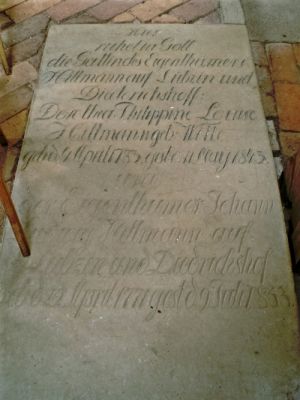 Hier
ruhet in Gott
die Gattin des Eigenthümers
Hillmann auf Lübzin und
Diederichshoff:
Dorothea Philippine Louise
Hillmann geb: Witte
geb: d April gest: May 1843
und
der Eigenthümer Johann
Hillmann auf
Lübzin und Diedrichshof
geb: d April gest: d 9 Juli 1853